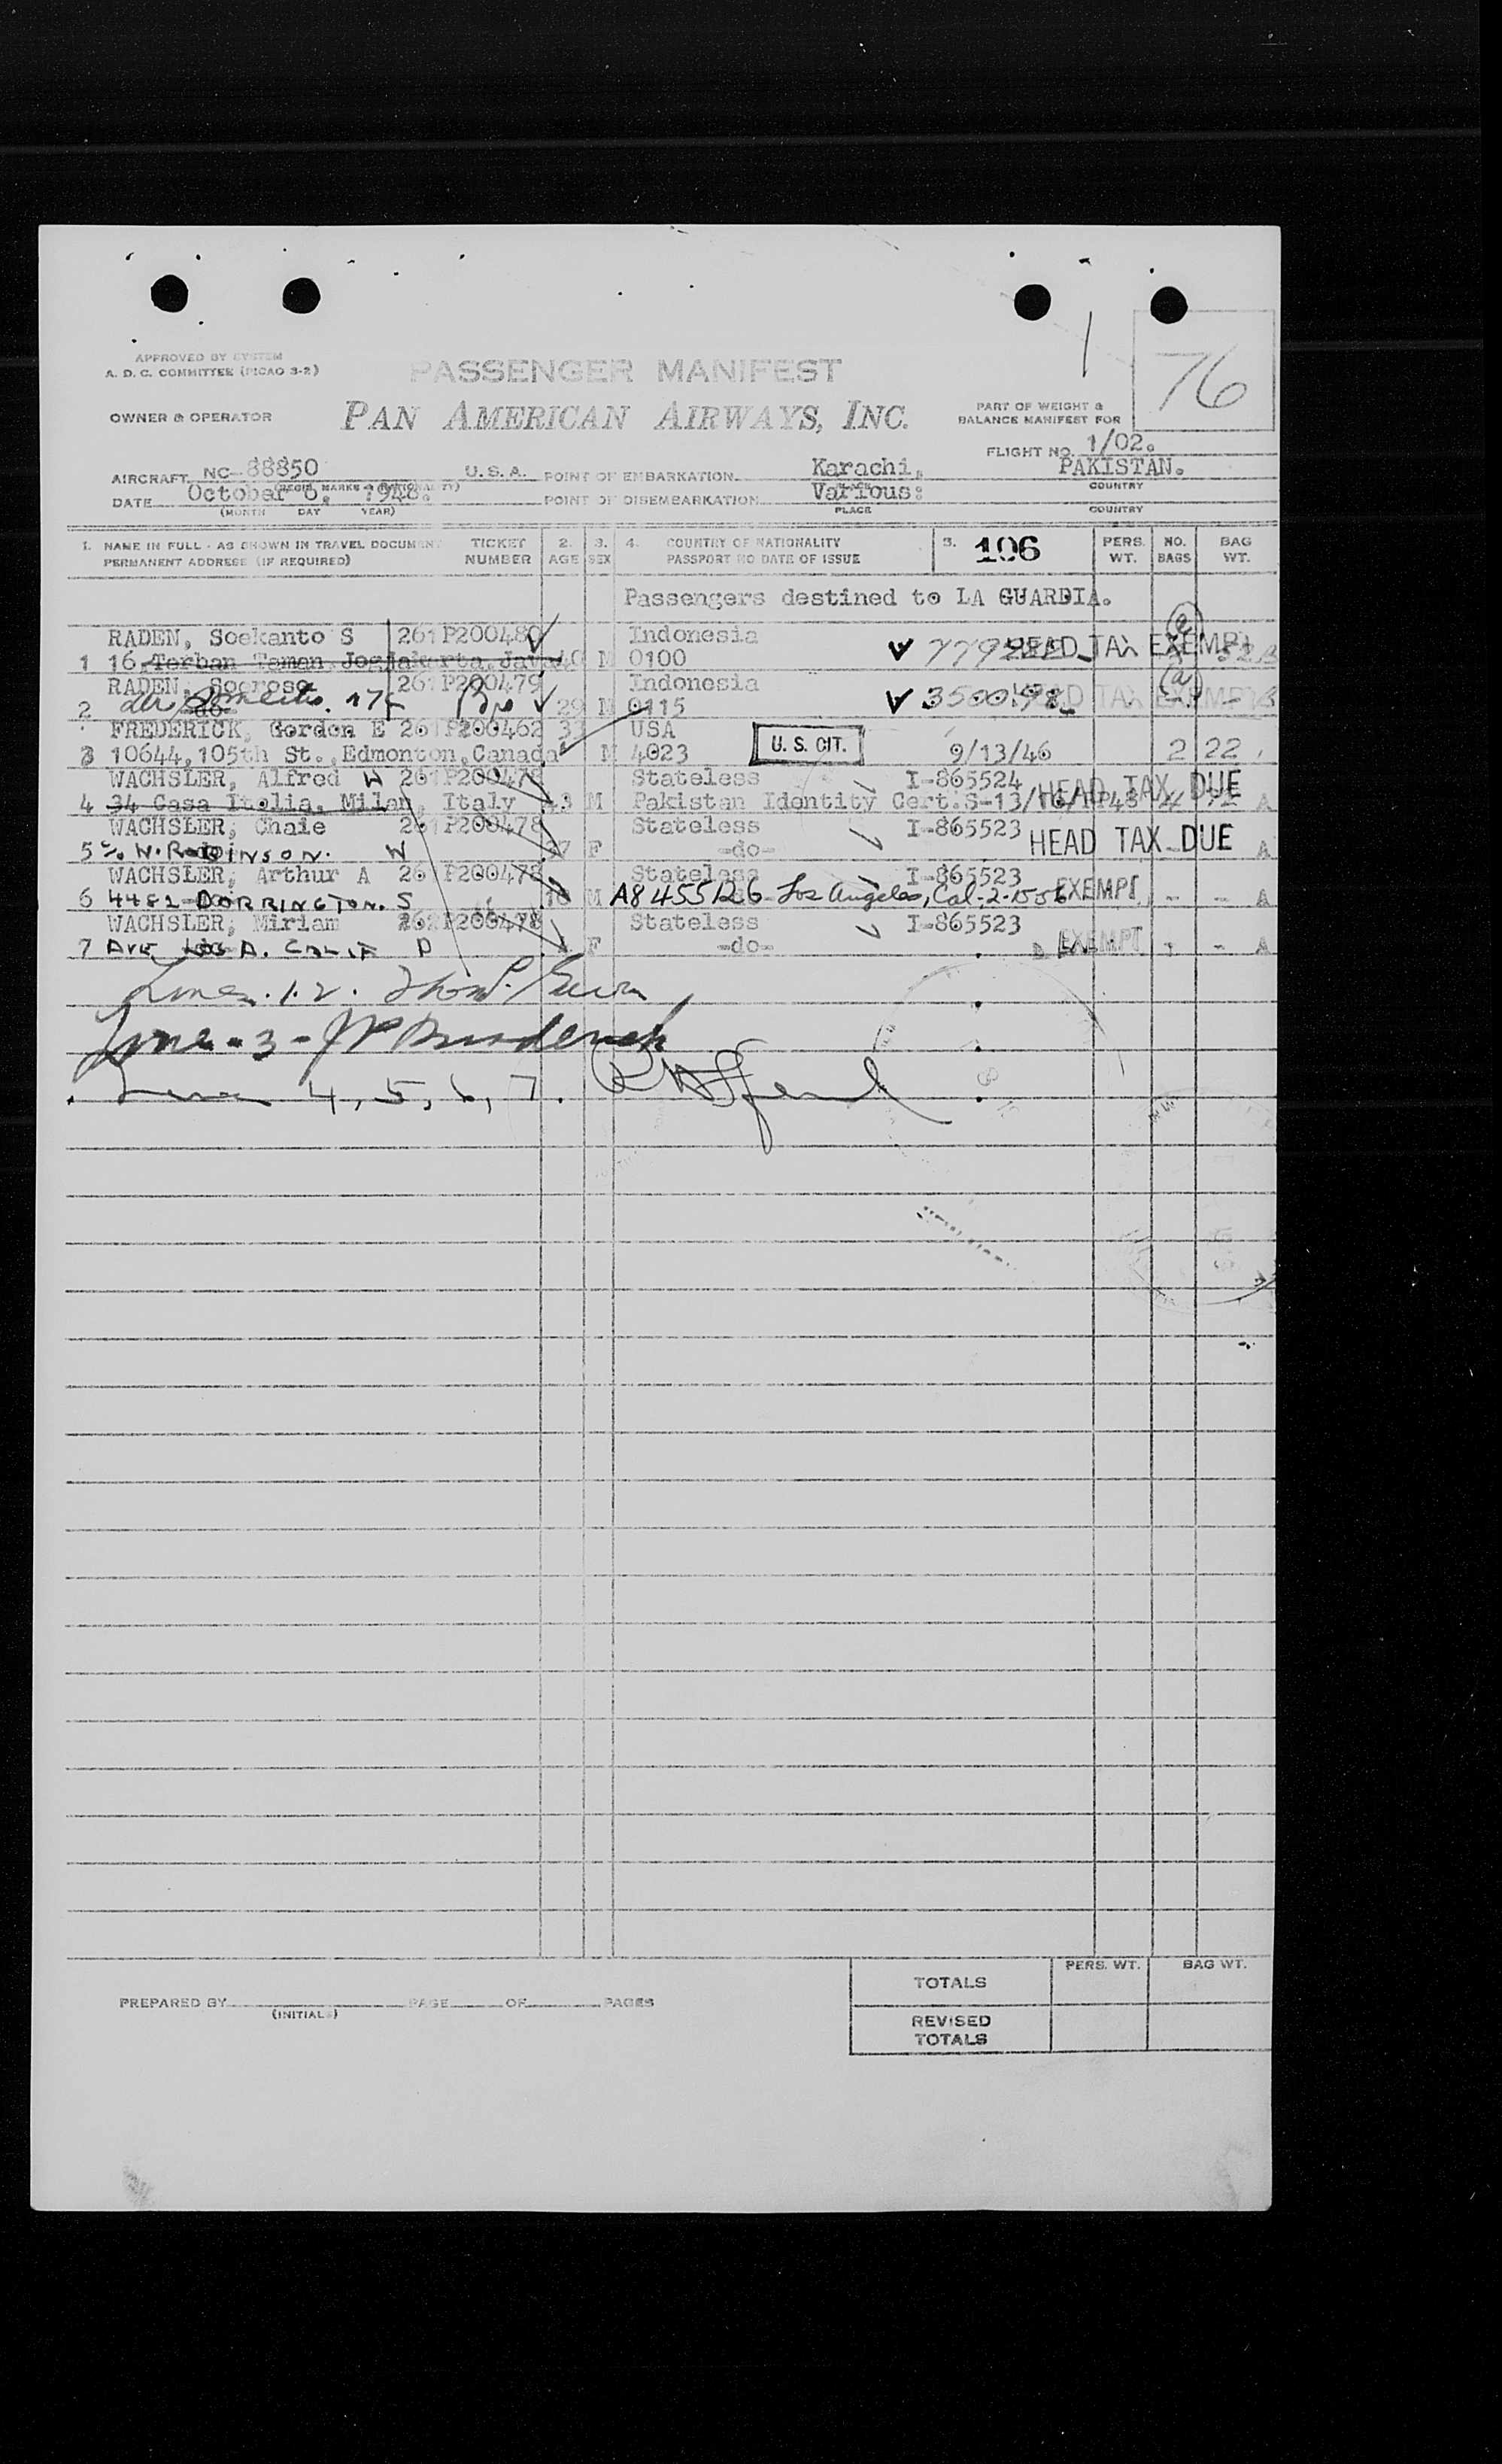 APPROVED BY SYSTEM
A. D. C. COMMITTEE (PICAO 3-2)
PASSENGER MANIFEST
76
OWNER & OPERATOR PAN AMERICAN AIRWAYS, INC.
PART OF WEIGHT &
BALANCE MANIFEST FOR
FLIGHT NO. 1/02.
AIRCRAFT NC-88850 U.S.A. POINT OF EMBARKATION Karachi, PAKISTAN.
COUNTRY
DATE October 6, 1948. POINT OF DISEMBARKATION Various:
(MONTH DAY YEAR) PLACE COUNTRY
1. NAME IN FULL - AS SHOWN IN TRAVEL DOCUMENT TICKET 2. 3. 4. COUNTRY OF NATIONALITY 5. 106 PERS. NO. BAG
PERMANENT ADDRESS (IF REQUIRED) NUMBER AGE SEX PASSPORT NO DATE OF ISSUE WT. BAGS WT.
Passengers destined to LA GUARDIA.
RADEN, Soekanto S 261 P200480 Indonesia
1 16 Terban Taman, Jogjakarta, Java 40 M 0100 HEAD TAX EXEMPT
RADEN, Soeroso 261 P200479 Indonesia
2 -do- 29 M 0115 350098 HEAD TAX EXEMPT
FREDERICK, Gordon E 261 P200462 33 USA
3 10644, 105th St., Edmonton, Canada M 4023 U. S. CIT. 9/13/46 2 22
WACHSLER, Alfred W 261 P200478 Stateless I-865524
4 34 Casa Italia, Milan, Italy 43 M Pakistan Identity Cert. HEAD TAX DUE A
WACHSLER, Chaie 261 P200478 Stateless I-865523
5 % W. ROBINSON. W 37 F -do- HEAD TAX DUE A
WACHSLER, Arthur A 261 P200478 Stateless I-865523
6 4482 DORRINGTON. S M A8 455 126 Los Angeles, Cal. EXEMPT - - A
WACHSLER, Miriam 262 P200478 Stateless I-865523
7 AVE LOS A. CALIF D F -do- EXEMPT - - A
Lines 1.2.
Line - 3 - JP Broderick
Lines 4, 5, 6, 7.
TOTALS PERS. WT. BAG WT.
PREPARED BY PAGE OF PAGES
(INITIALS)
REVISED
TOTALS